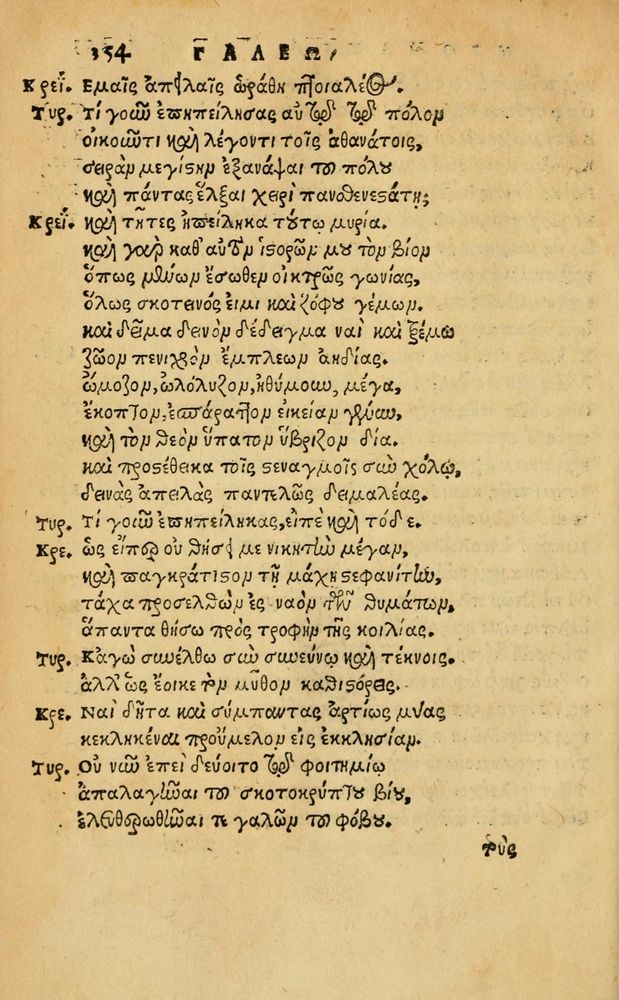 354 ΓΑΛΕΩ
Κρεΐ. Εμαῖς ἀπειλαῖς ὡράθη πτοιαλέος.
Τυρ. Τί γοῦν ἐπηπείλησας αὐτῷ τῷ πόλον
οἰκοῦντι καὶ λέγοντι τοῖς ἀθανάτοις,
σειρὰν μεγίστην ἐξανάψαι τοῦ πόλου
καὶ πάντας ἕλξαι χειρὶ πανσθενεστάτῃ;
Κρεΐ. καὶ τῆτες ἠπείληκα τούτῳ μυρία.
καὶ γὰρ καθ' αὑτὸν ἱστορῶν μου τὸν βίον
ὅπως μένων ἔσωθεν οἰκτρῶς γωνίας,
ὅλως σκοτεινός εἰμι καὶ ζόφου γέμων.
καὶ δεῖμα δεινὸν δέδειγμα ναὶ καὶ ξένω
ζῶον πενιχρὸν ἔμπλεων ἀηδίας.
ᾤμοζον, ὠλόλυζον, ἠθύμουν, μέγα,
ἐκοπτον, ἐσπάρατον εἰκείαν γένυν,
καὶ τὸν θεὸν ὕπατον ὕβριζον δία.
καὶ προσέθεικα τοῖς στεναγμοῖς σὺν χόλῳ,
δεινὰς ἀπειλὰς παντελῶς δειμαλέας.
Τυρ. Τί γοῦν ἐπηπείληκας, εἰπὲ καὶ τόδε.
Κρε. ὡς εἴπερ οὐ θήσει με νικητὴν μέγαν,
καὶ παγκράτιστον τῇ μάχῃ στεφανίτην,
τάχα προσελθὼν ἐς ναὸν τῶν θυμάτων,
ἅπαντα θήσω πρὸς τροφὴν τῆς κοιλίας.
Τυρ. Κἀγὼ συνέλθω σὺν συνεύνῳ καὶ τέκνοις.
ἀλλ' ὡς ἔοικε τὸν μῦθον καθιστόρεις.
Κρε. Ναὶ δῆτα καὶ σύμπαντας ἀρτίως μύας
κεκληκέναι προὔμελον εἰς ἐκκλησίαν.
Τυρ. Οὐ νῶν ἐπεὶ δεύοιτο τῷ φοιτημίῳ
ἀπαλαγῆναι τοῦ σκοτοκρύπτου βίου,
ἐλευθερωθῆναί τε γαλῶν τοῦ φόβου.
τρὺς